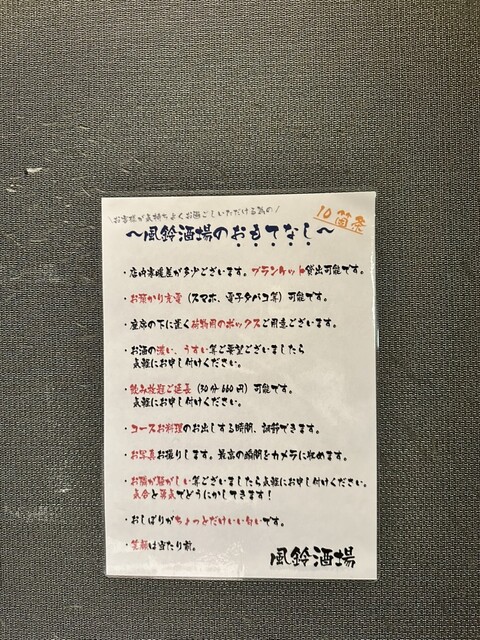 \お客様が気持ちよくお過ごしいただける為の/
10箇条
～風鈴酒場のおもてなし～
・店内寒暖差が多少ございます。ブランケット貸出可能です。
・お預かり充電（スマホ、電子タバコ等）可能です。
・座席の下に置く荷物用のボックスご用意ございます。
・お酒の濃い、うすい等ご要望ございましたら
気軽にお申し付けください。
・飲み放題ご延長（30分660円）可能です。
気軽にお申し付けください。
・コースお料理のお出しする時間、調節できます。
・お写真お撮りします。最高の瞬間をカメラに収めます。
・お隣が騒がしい等ございましたら気軽にお申し付けください。
気合と勇気でどうにかしてきます！
・おしぼりがちょっとだけいい匂いです。
・笑顔は当たり前。
風鈴酒場